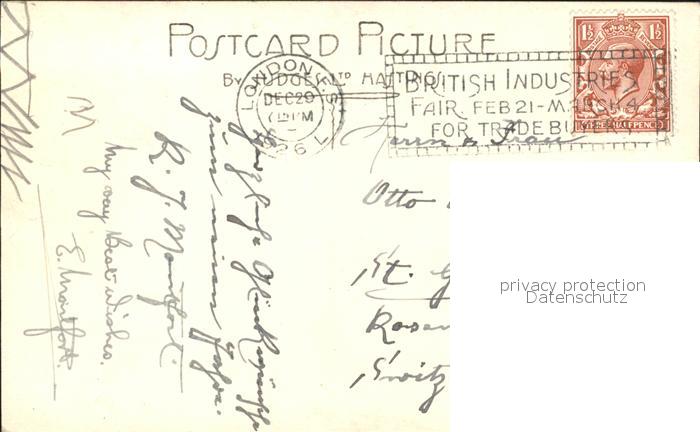 POSTCARD PICTURE
BY JUDGES LTD HASTINGS
LONDON
DEC 29
PM
26
BRITISH INDUSTRIES
FAIR FEB 21-MARCH 4
FOR TRADE BU
1½ 1½
THREE HALFPENCE
Herrn & Frau
Otto
St. G
Rosen
Switz
Herzliche Glückwünsche
zum neuen Jahre.
R. J. Montfort.
My very Best Wishes.
E. Montfort.
privacy protection
Datenschutz